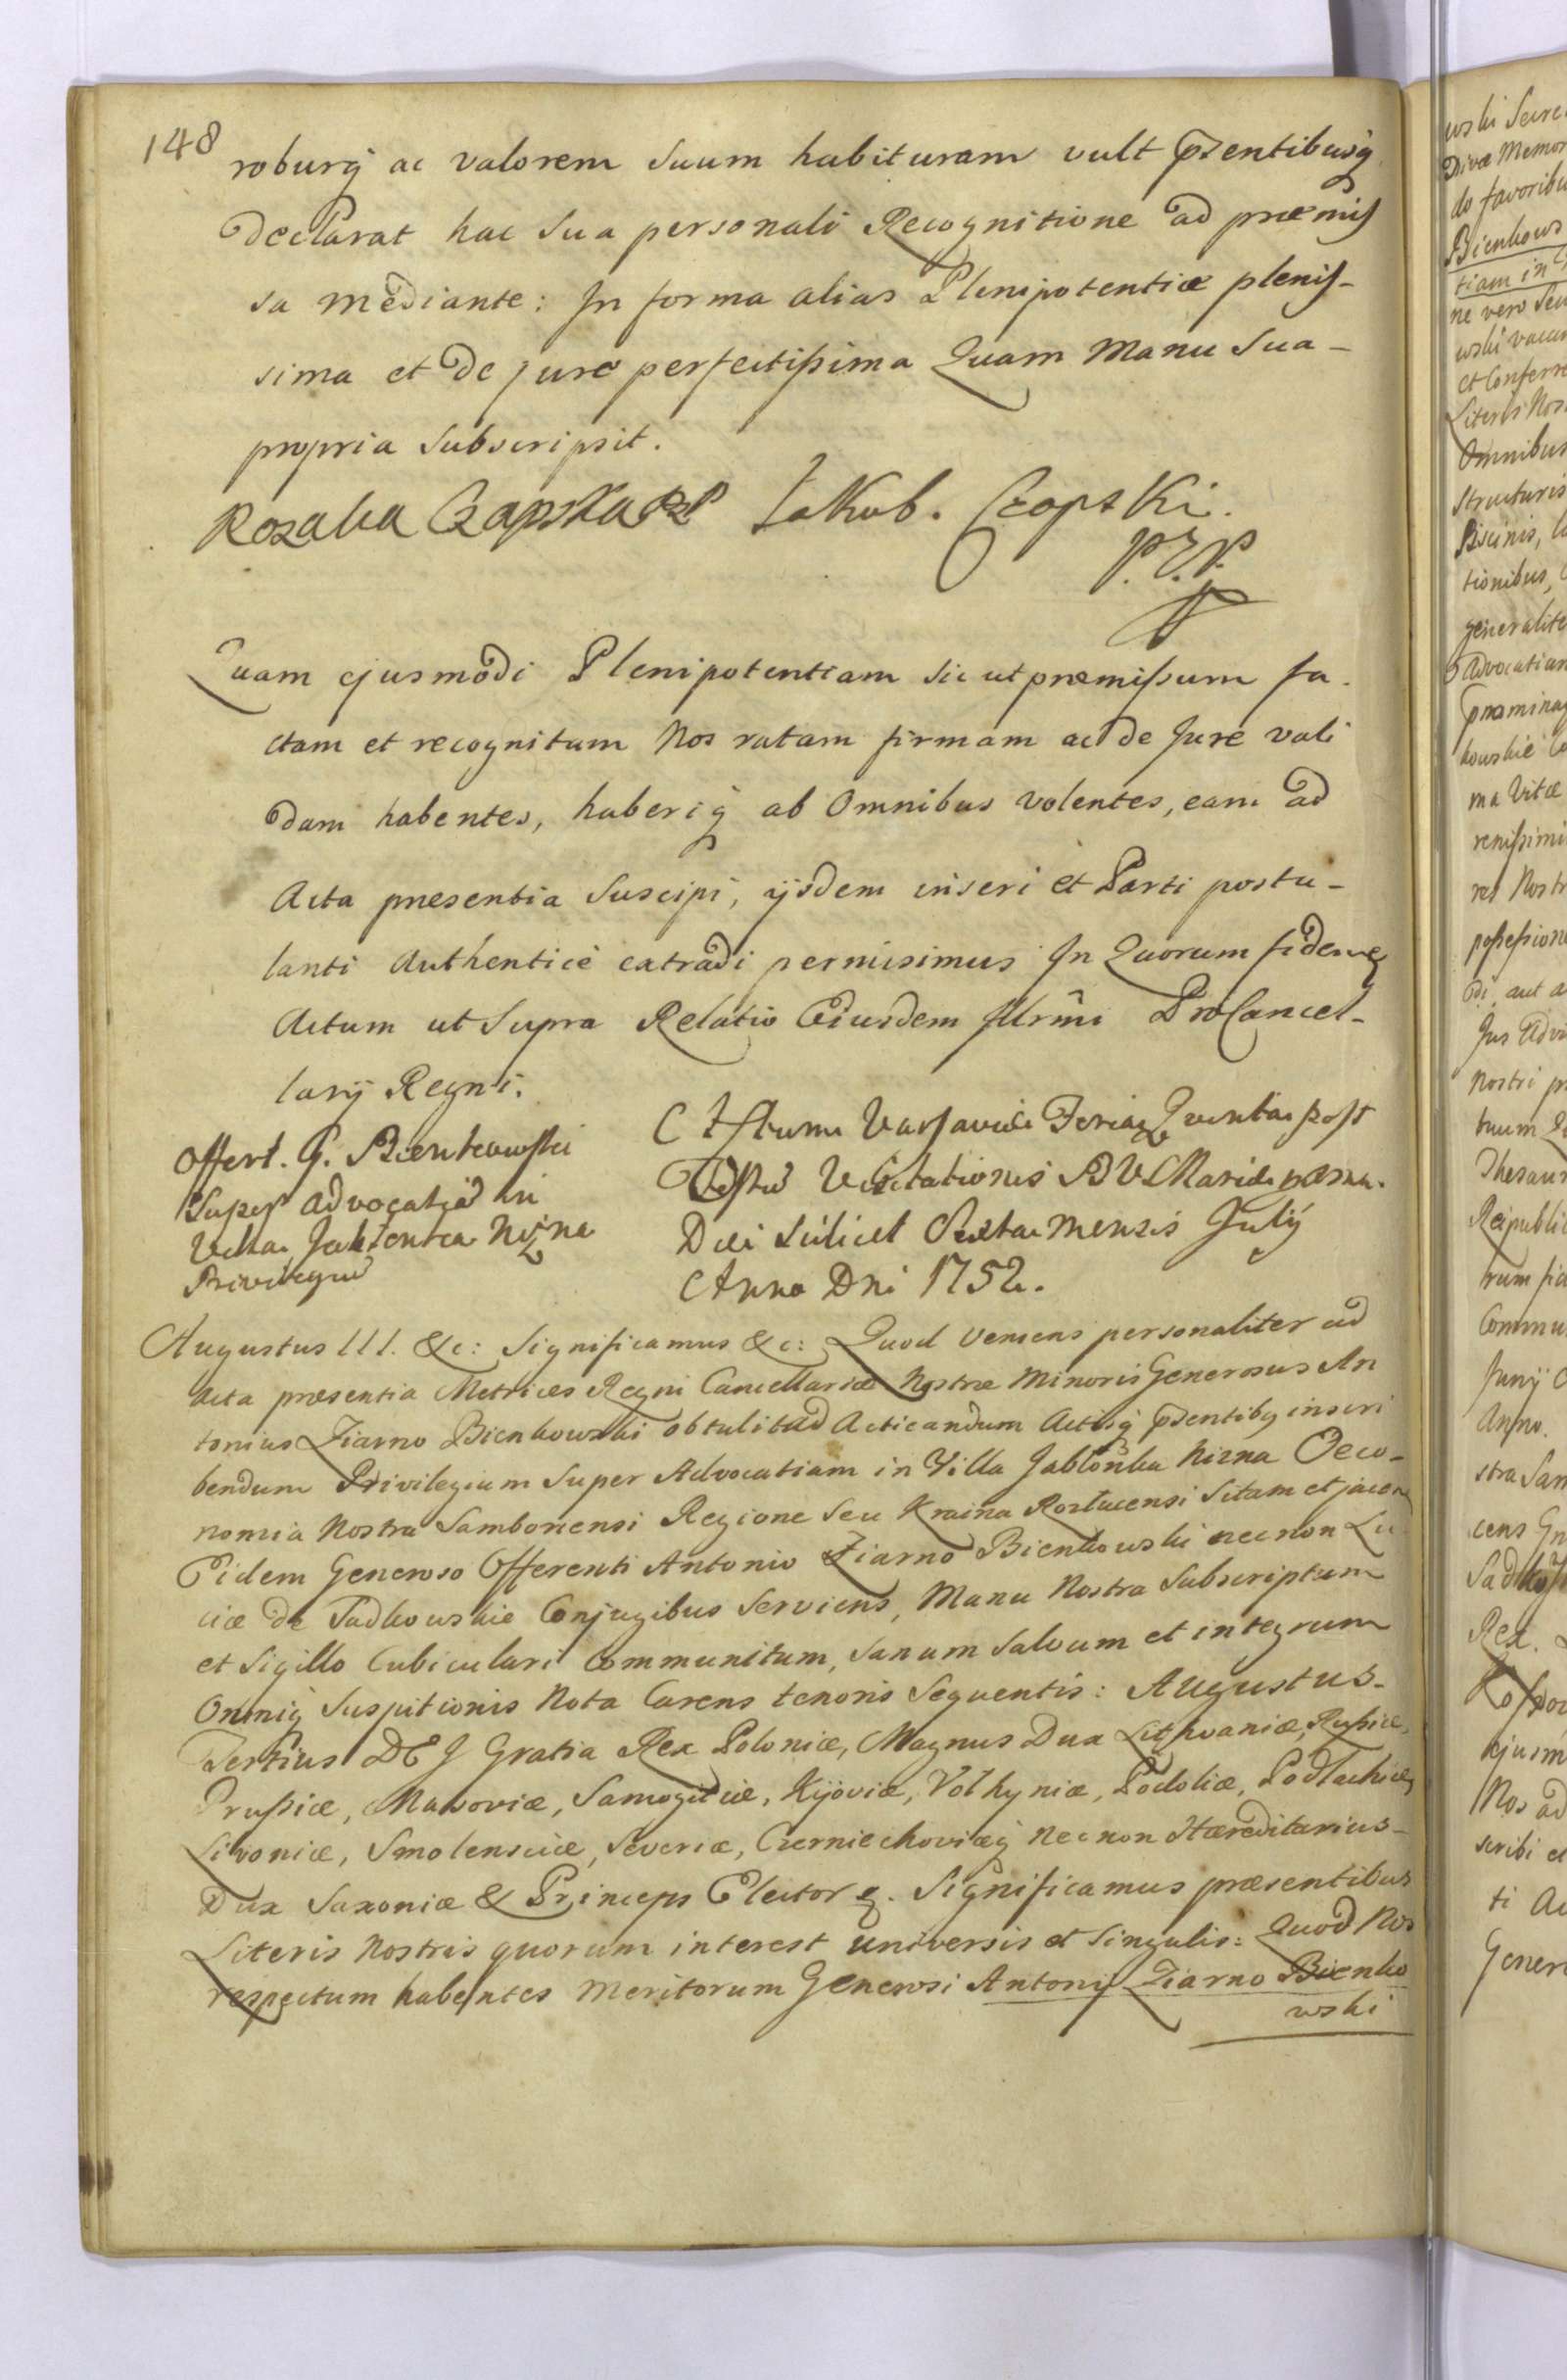 148
roburq̃ ac valorem Suum habituram vult pr̃sentibusq̃
declarat hac sua personali Recognitione ad præmis
sa mediante: In forma alias Plenipotentiæ plenis-
sima et de jure perfectissima Quam Manu Sua-
propria Subscripsit.
Rozalia Czapska
Jakub. Czapski.
Quam ejusmodi Plenipotentiam sic ut præmissum fa-
ctam et recognitam Nos ratam firmam ac de Jure vali
dam habentes, haberiq̃ ab Omnibus volentes, eam ad
Acta præsentia Suscipi, ijsdem inseri et Parti postu-
lanti Authenticè extradi permisimus In Quorum fidem
Actum ut Supra Relatio Ejusdem Illrm̃i ProCancel-
larij Regni.
Offert. G. Bienkowski
Super advocatiã in
Villa Jabłonka Niżna
Privilegiũ
Actum Varsaviæ Feria Quinta post
Festũ Visitationis B V Mariæ
Diei Scilicet Sexta Mensis Julij
Anno Dni 1752.
Augustus III. &c: Significamus &c: Quod veniens personaliter ad
Acta præsentia Metrices Regni Cancellariæ Nostræ Minoris Generosus An
tonius Ziarno Bienkowski obtulit ad Acticandum Actisq̃ pr̃sentibq inscri
bendum Privilegium Super Advocatiam in Villa Jabłonka Nizna Oeco-
nomia Nostra Samboriensi Regione Seu Kraina Rozlucensi Sitam et jacen
Eidem Generoso Offerenti Antonio Ziarno Bienkowski necnon Lu
ciæ de Sadkowskie Conjugibus Serviens, Manu Nostra Subscriptum
et Sigillo Cubiculari Communitum, Sanum Salvum et integrum
Omniq̃ Suspitionis Nota Carens tenoris Sequentis: Augustus-
Tertius DEI Gratia Rex Poloniæ, Magnus Dux Lithvaniæ, Russiæ,
Prussiæ, Masoviæ, Samogitiæ, Kijoviæ, Volhyniæ, Podoliæ, Podlachiæ,
Livoniæ, Smolensciæ, Severiæ, Czerniechoviæq̃ Necnon Hæreditarius-
Dux Saxoniæ & Princeps Elector &. Significamus præsentibus
Literis Nostris quorum interest universis et Singulis: Quod Nos
respectum habentes Meritorum Generosi Antonij Ziarno Bienko
wski
Divæ Memor
do favoribu
Bienkows
tiam in
ne vero Seu
wski vacan
et Conferre
Literis Nos
Omnibus
Structuris
Piscinis,
tionibus,
generalite
Advocatian
kowskie
ma Vitæ
renissimi
res Nostr
possession
di, aut a
Jus Advo
Nostri pr
Thesaur
Reipublic
rum fid
Commu
Junij
Anno.
stra San
cens Gn
Rex.
ejusm
Nos ad
scribi et
ti Ac
Gener